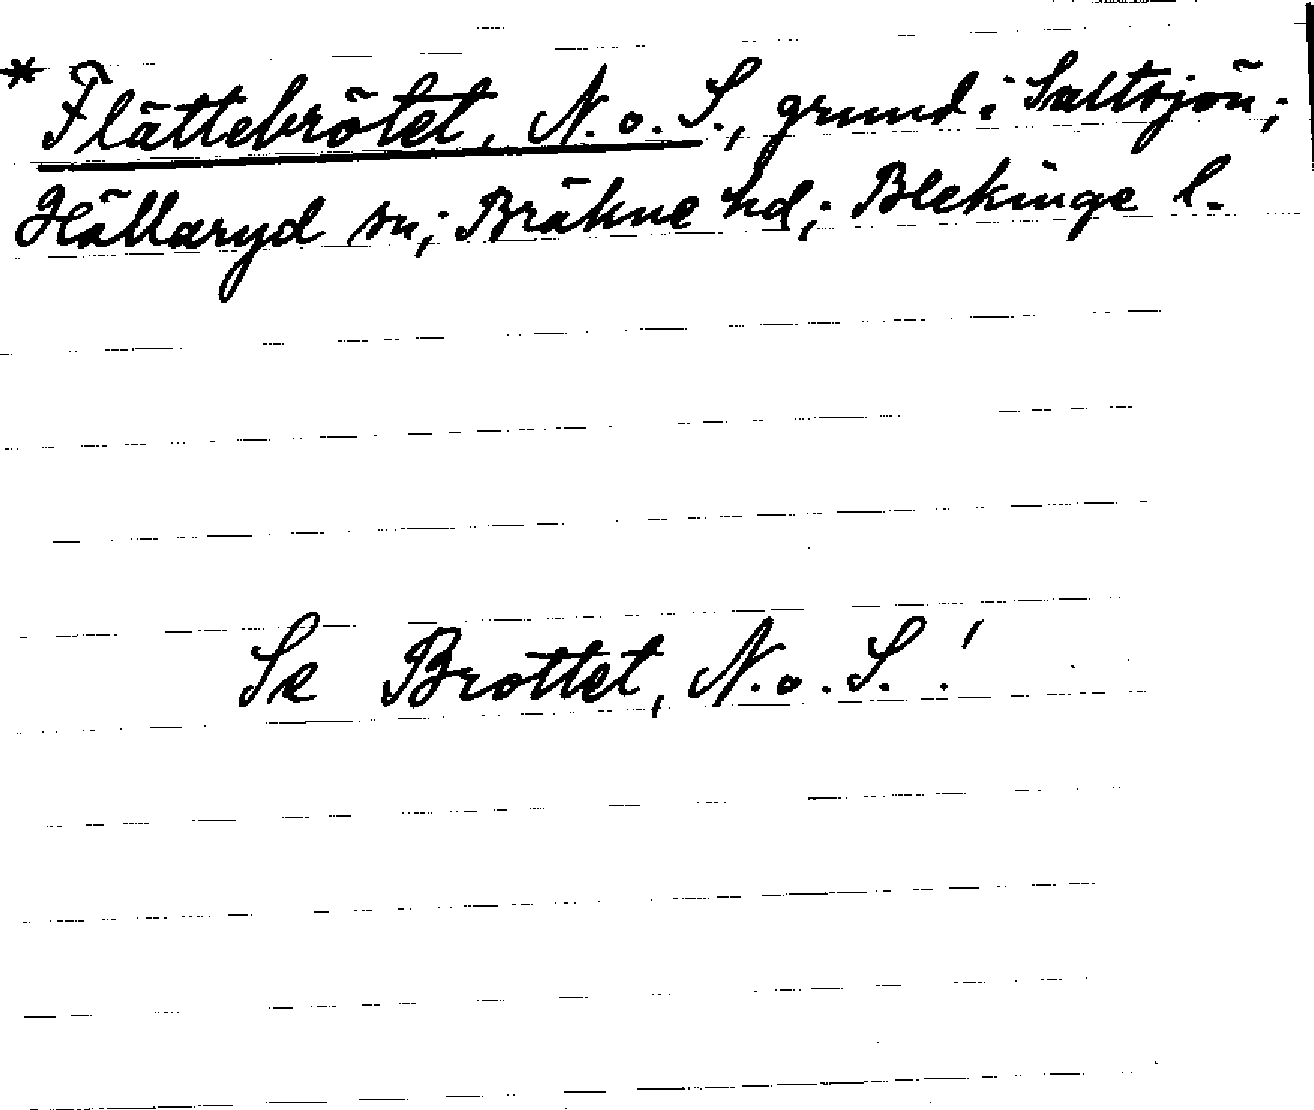 * Flättebrötet, N. o. S., grund i Saltsjön;
Hällaryd sn; Bräkne hd; Blekinge l.
Se Brottet, N. o. S.!